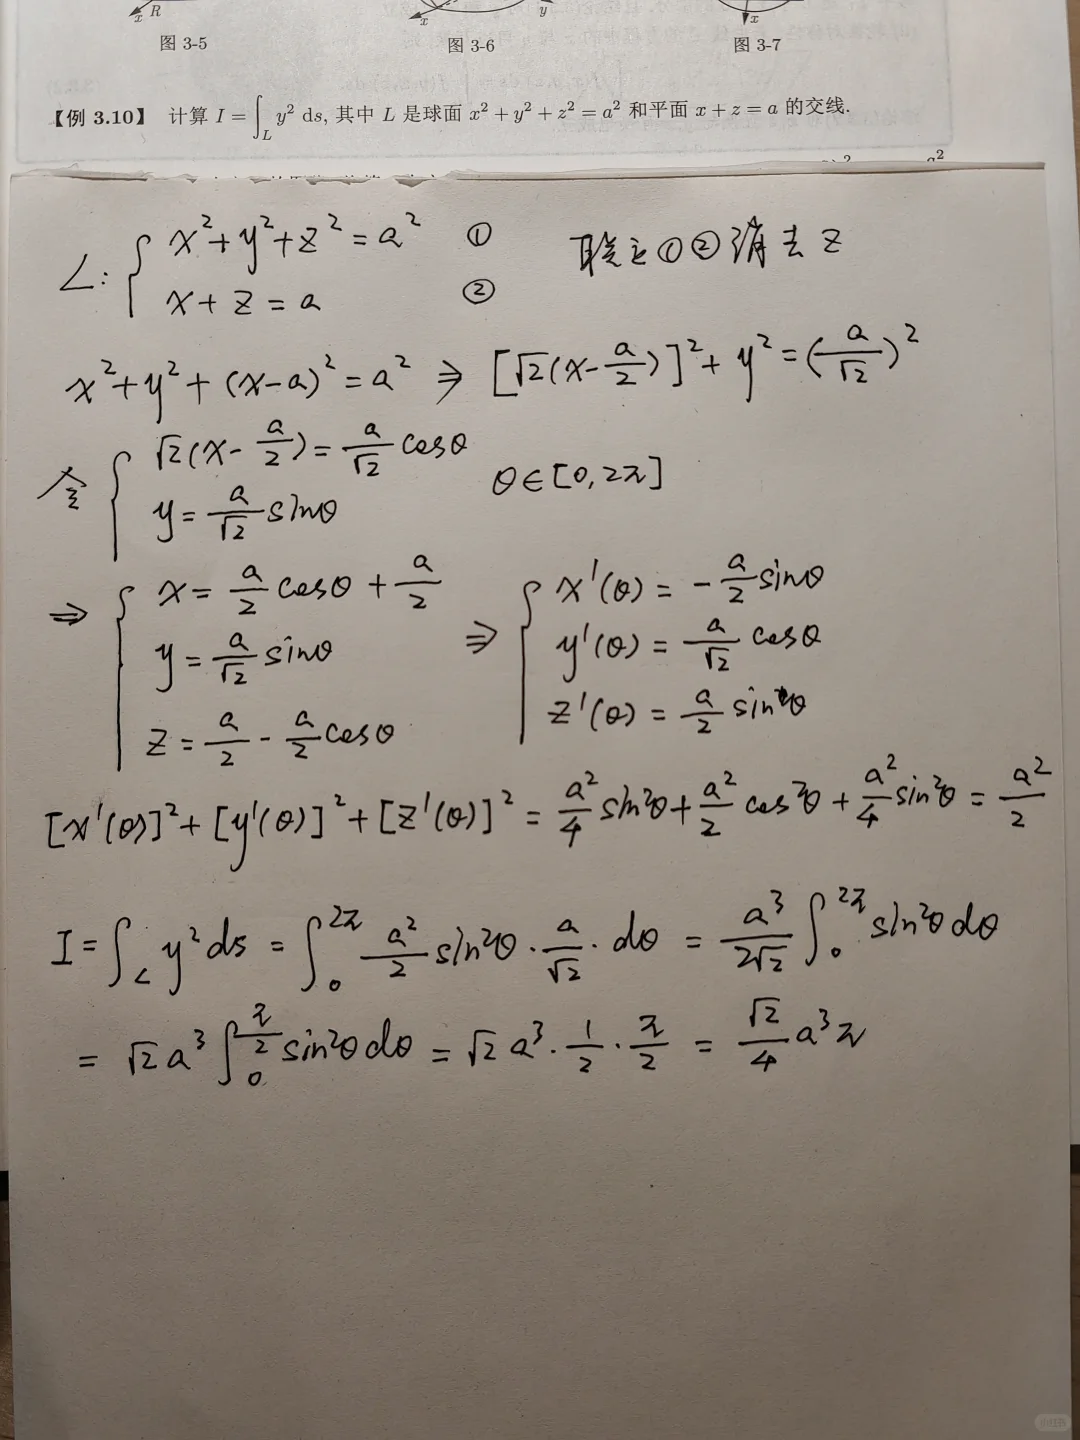 x R
x
y
x
图 3-5
图 3-6
图 3-7
【例 3.10】 计算 I = ∫_L y² ds, 其中 L 是球面 x² + y² + z² = a² 和平面 x + z = a 的交线.
L: { x² + y² + z² = a² ① 联立①②消去 z
x + z = a ②
x² + y² + (x-a)² = a² ⇒ [√2(x - a/2)]² + y² = (a/√2)²
令 { √2(x - a/2) = a/√2 cosθ
y = a/√2 sinθ θ∈[0,2π]
⇒ { x = a/2 cosθ + a/2
y = a/√2 sinθ
z = a/2 - a/2 cosθ
⇒ { x'(θ) = - a/2 sinθ
y'(θ) = a/√2 cosθ
z'(θ) = a/2 sinθ
[x'(θ)]² + [y'(θ)]² + [z'(θ)]² = a²/4 sin²θ + a²/2 cos²θ + a²/4 sin²θ = a²/2
I = ∫_L y² ds = ∫_0^{2π} a²/2 sin²θ · a/√2 · dθ = a³/2√2 ∫_0^{2π} sin²θ dθ
= √2 a³ ∫_0^{π/2} sin²θ dθ = √2 a³ · 1/2 · π/2 = √2/4 a³π